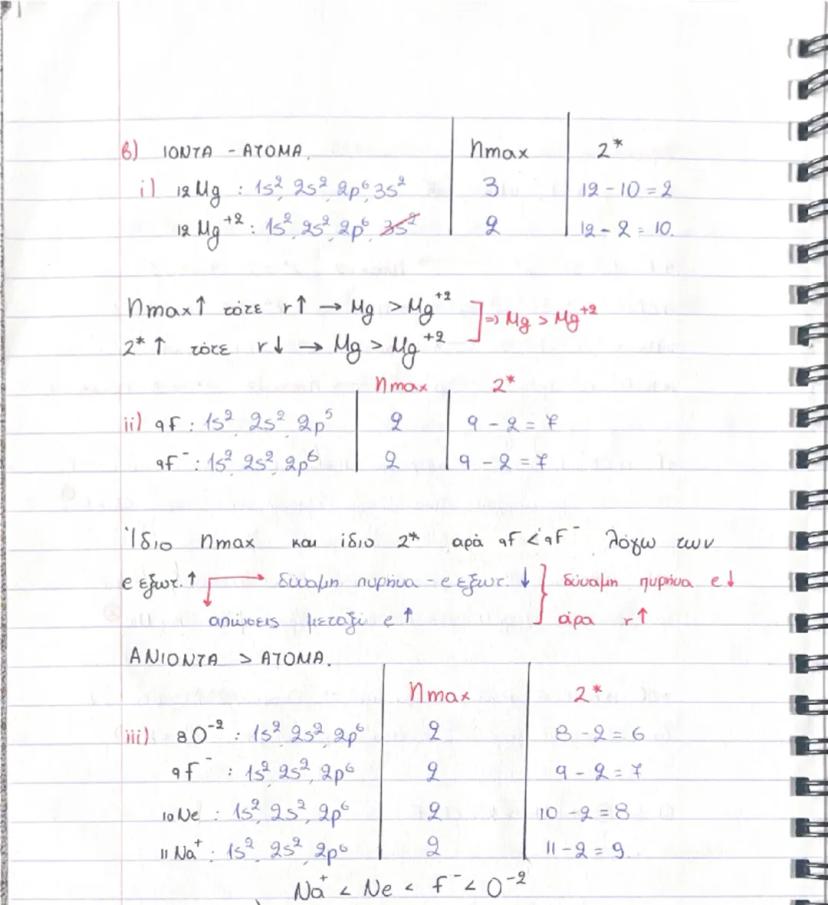 β) ΙΟΝΤΑ - ΑΤΟΜΑ. nmax 2*
i) 12Mg : 1s², 2s², 2p⁶, 3s² 3 12 - 10 = 2
12Mg⁺² : 1s², 2s², 2p⁶, 3s² 2 12 - 2 = 10.
nmax↑ τότε r↑ → Mg > Mg⁺² ⇒ Mg > Mg⁺²
2* ↑ τότε r↓ → Mg > Mg⁺²
nmax 2*
ii) 9F : 1s², 2s², 2p⁵ 2 9 - 2 = 7
9F⁻ : 1s², 2s², 2p⁶ 2 9 - 2 = 7
Ίδιο nmax και ίδιο 2* αρά 9F < 9F⁻ λόγω των
e εξωτ. ↑ → δύναμη πυρήνα - e εξωτ. ↓ } δύναμη πυρήνα e↓
απώσεις μεταξύ e ↑ άρα r↑
ΑΝΙΟΝΤΑ > ΑΤΟΜΑ.
nmax 2*
iii) 8O⁻² : 1s², 2s², 2p⁶ 2 8 - 2 = 6
9F⁻ : 1s², 2s², 2p⁶ 2 9 - 2 = 7
10Ne : 1s², 2s², 2p⁶ 2 10 - 2 = 8
11Na⁺ : 1s², 2s², 2p⁶ 2 11 - 2 = 9
Na⁺ < Ne < F⁻ < O⁻²